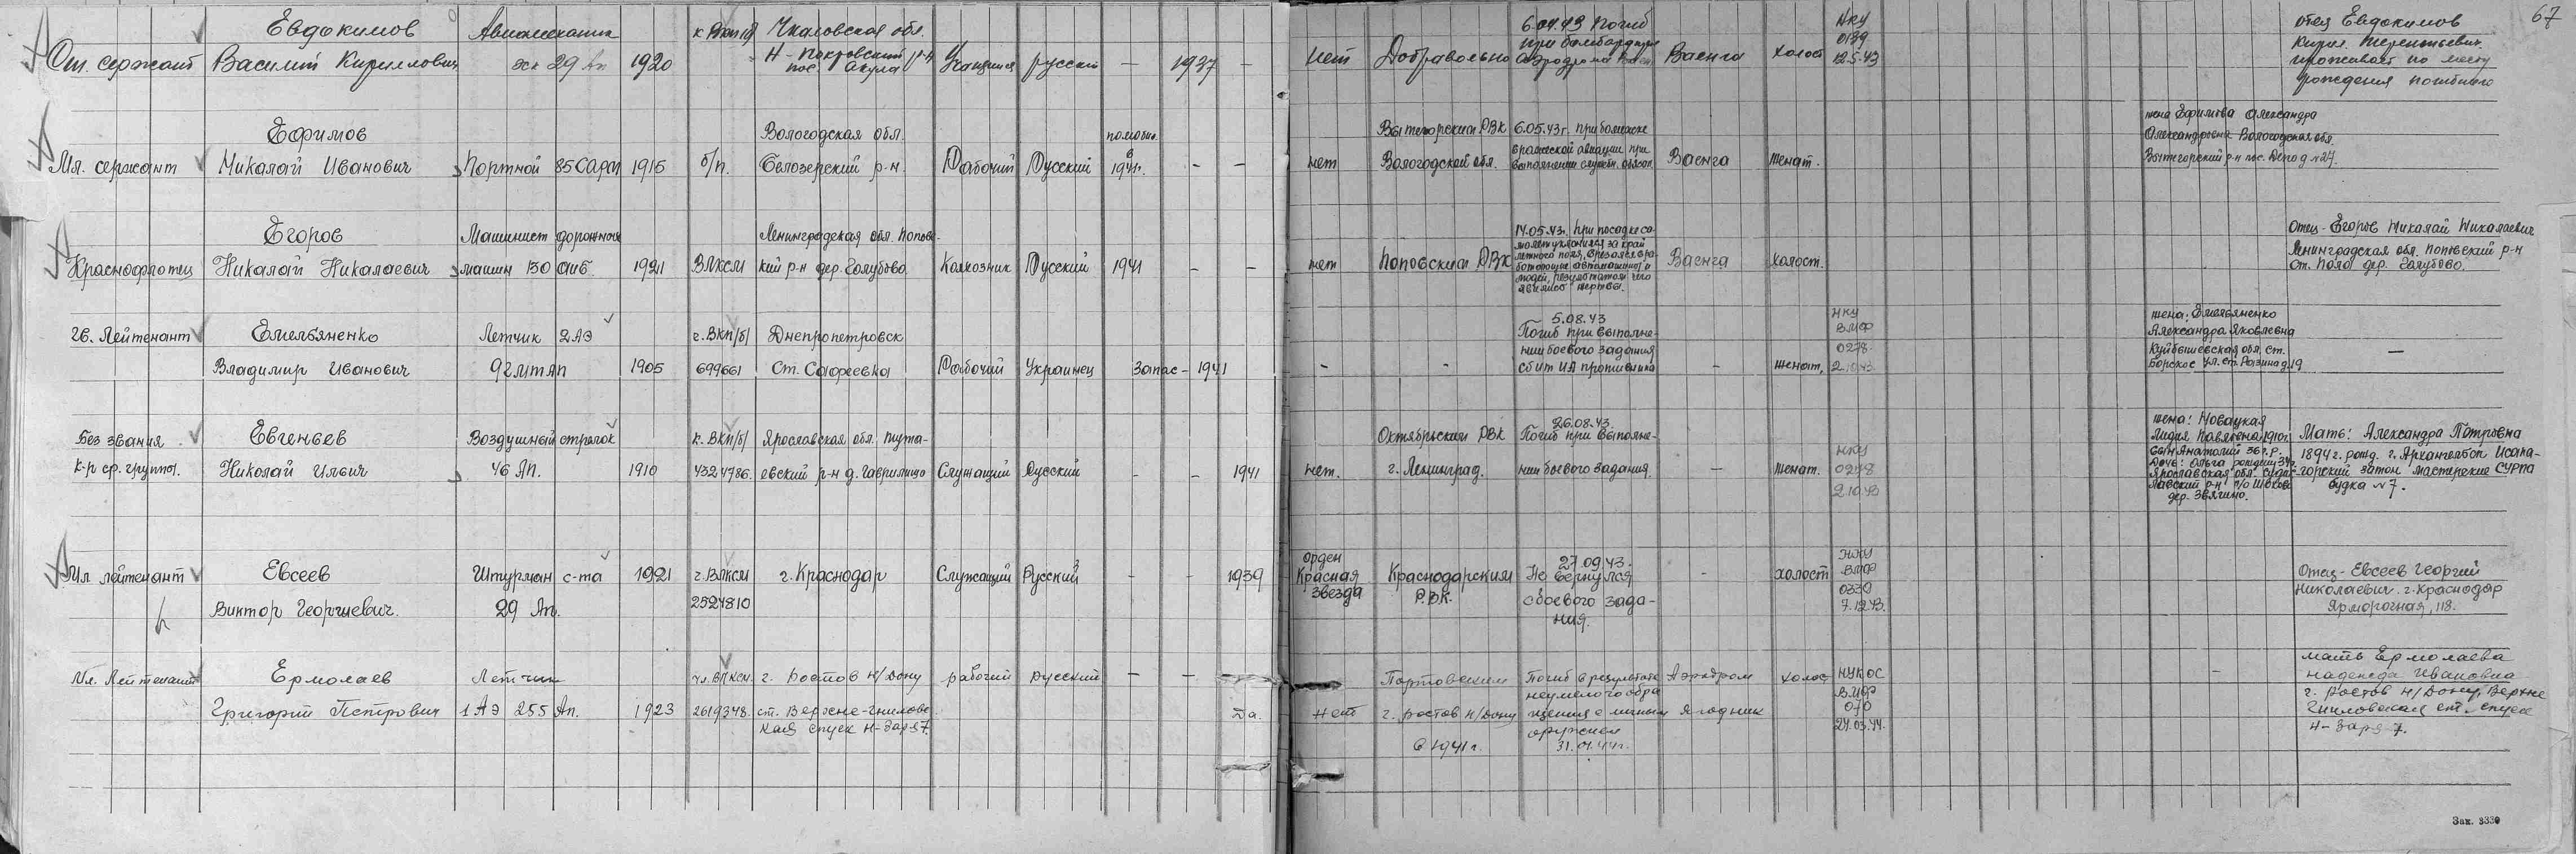 67
Евдокимов Авиамеханик к. ВКП(б) Чкаловская обл.
Ст. сержант Василий Кириллович эск 29 Ап 1920 Н-Покровский р-н Учащийся русский — 1937 —
пос.
нет Добровольно 6.04.43 погиб
при бомбардир.
аэродрома Ваенга холост НКУ
0139
12.5.43
отец Евдокимов
Кирил. Терентьевич
проживает по месту
рождения погибшего
Ефимов Вологодская обл.
Мл. сержант Николай Иванович Портной 85 САП 1915 б/п. Белозерский р-н. Рабочий Русский
1941г. — —
нет Вытегорским РВК
Вологодской обл.
6.05.43г. при бомбежке
вражеской авиации при
выполнении служебн. обязан.
Ваенга женат.
жена Ефимова Александра
Александровна Вологодская обл.
Вытегорский р-н пос. Депо д №27.
Егоров Машинист дорожных Ленинградская обл. Попов-
Краснофлотец Николай Николаевич машин 130 ОИБ 1921 ВЛКСМ кий р-н дер. Голубово. Колхозник Русский 1941 — —
нет Поповским РВК
14.05.43г. при посадке са-
молет уклонился за край
летного поля, врезался в ра-
ботающие автомашины и
людей, результатом чего
явились жертвы.
Ваенга холост.
Отец - Егоров Николай Николаевич
Ленинградская обл. Поповский р-н
дер. Голубово.
Гв. Лейтенант Емельяненко Летчик 2 АЭ г. ВКП/б/ Днепропетровск
Владимир Иванович 9 гв мтап 1905 699661 Ст. Софеевка Рабочий Украинец Запас - 1941
- -
5.08.43
Погиб при выполне-
нии боевого задания
сбит ИА противника
- женат,
НКУ
ВМФ
0278
2.10.43
жена: Емельяненко
Александра Яковлевна
Куйбышевская обл. ст.
Борское ул. ст. Разина д.19
—
Без звания Евгеньев Воздушный стрелок к. ВКП/б/ Ярославская обл. Тута-
к-р ср. группы. Николай Ильич 46 АП. 1910 4324786. евский р-н д. Гаврилищо Служащий Русский - - 1941
нет. Октябрьским РВК
г. Ленинград.
26.08.43.
Погиб при выполне-
нии боевого задания.
— женат.
НКУ
0278
2.10.43
жена: Новацкая
Лидия
Сын Анатолий 36 г.р.
Дочь: Ольга
Ярославская обл.
дер. Звягино.
Мать: Александра Петровна
1894 г. рожд. г. Архангельск Исака-
горский затон мастерские СУРПа
будка №7.
Мл лейтенант Евсеев Штурман с-та 1921 г. ВЛКСМ г. Краснодар Служащий Русский - - 1939
Виктор Георгиевич. 29 Ап. 2524810
Орден
Красная
Звезда
Краснодарским
Р.В.К.
27.09.43.
Не вернулся
с боевого зада-
ния.
- холост
НКУ
ВМФ
0330
7.12.43.
Отец - Евсеев Георгий
Николаевич. г. Краснодар
Ярморочная, 118.
Мл. Лейтенант Ермолаев Летчик чл. ВЛКСМ г. Ростов н/Дону рабочий русский — —
Григорий Петрович 1 АЭ 255 Ап. 1923 2619348. ст. Верхне-Гнилове- Да.
кая спуск Н-Заря 7.
нет Портовским
г. Ростов н/Дону
в 1941 г.
Погиб в результате
неумелого обра
щения с личным
оружием
31.01.44г.
Аэродром
Ягодник
холост
НУКОС
ВМФ
070
24.03.44.
-
мать Ермолаева
Надежда Ивановна
г. Ростов н/Дону, Верхне
Гниловская ст. спуск
Н-Заря 7.
Зак. 3330